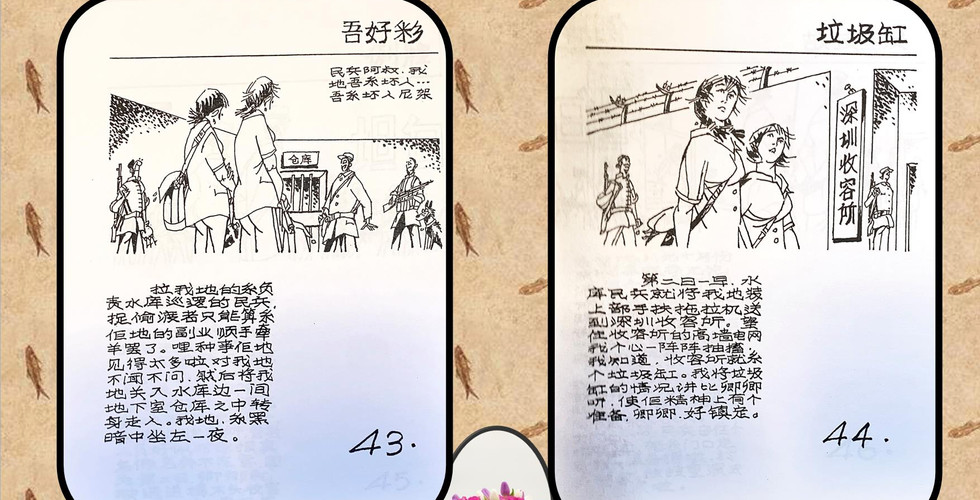 吾好彩
民兵阿叔．我
地吾系坏人…
吾系坏人尼架
仓库
拉我地的系负
责水库巡逻的民兵，
捉偷渡者只能算系
佢地的副业顺手牵
羊罢了。哩种事佢地
见得太多啦对我地
不闻不问．然后将我
地关入水库边一间
地下室仓库之中转
身走人。我地．系黑
暗中坐左一夜。
43．
垃圾缸
深圳收容所
第二日一早．水
库民兵就将我地装
上部手扶拖拉机送
到深圳收容所。望
住收容所的高墙电网
我个心一阵阵抽搐．
我知道．收容所就系
个垃圾缸。我将垃圾
缸的情况讲比卿卿
听．使佢精神上有个
准备．卿卿．好镇定。
44．